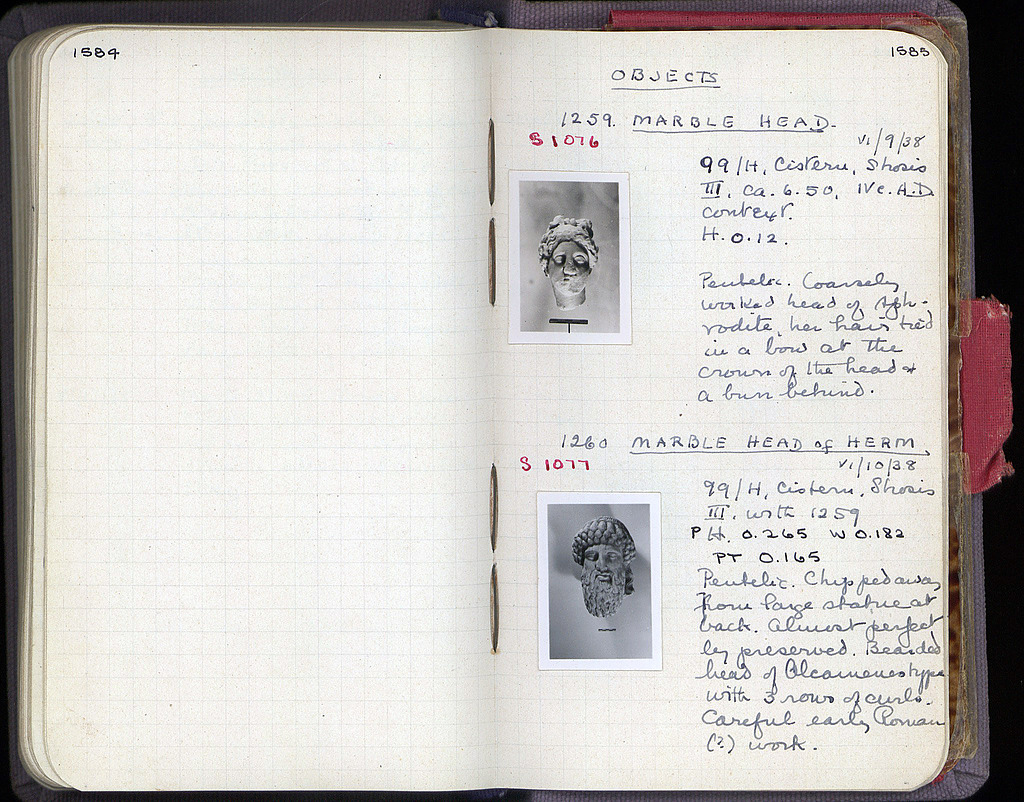 1584
1585
OBJECTS
1259. MARBLE HEAD.
S 1076
VI/9/38
99/H, Cistern, Strosis
III, ca. 6.50, IVc. A.D.
context.
H. 0.12.
Pentelic. Coarsely
worked head of Aph-
rodite, her hair tied
in a bow at the
crown of the head &
a bun behind.
1260 MARBLE HEAD of HERM.
S 1077
VI/10/38
99/H, Cistern, Strosis
III, with 1259
PH. 0.265 W 0.182
PT 0.165
Pentelic. Chipped away
from large statue at
back. Almost perfect
ly preserved. Bearded
head of Alcamenes type
with 3 rows of curls.
Careful early Roman
(?) work.